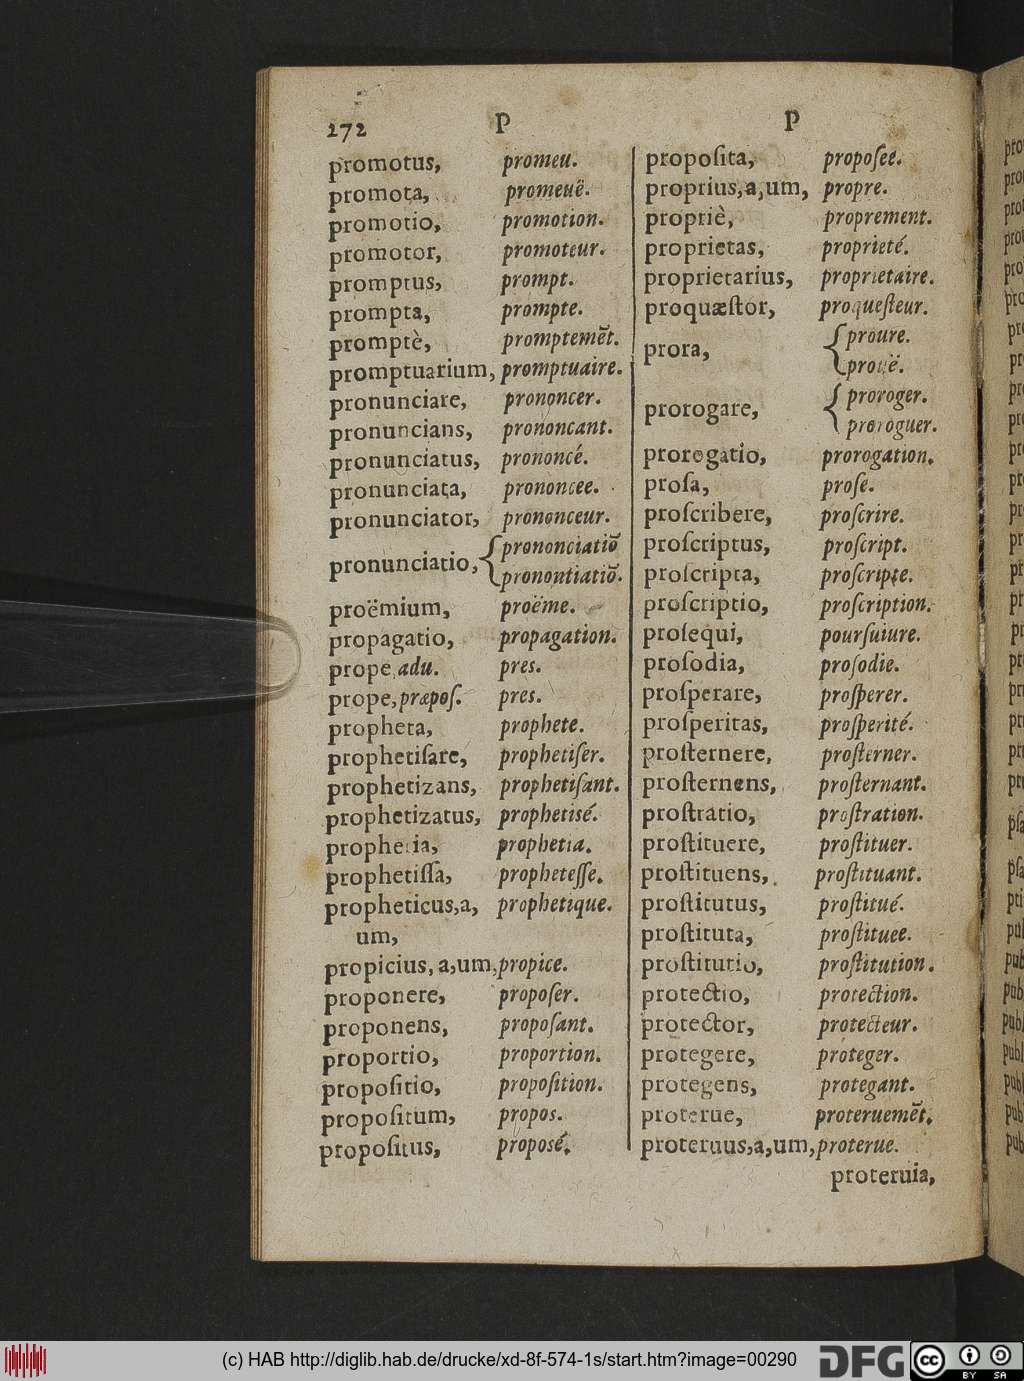 272 P P
promotus, promeu.
promota, promeuë.
promotio, promotion.
promotor, promoteur.
promptus, prompt.
prompta, prompte.
promptè, promptemẽt.
promptuarium, promptuaire.
pronunciare, prononcer.
pronuncians, prononcant.
pronunciatus, prononcé.
pronunciata, prononcee.
pronunciator, prononceur.
pronunciatio, { prononciatiõ
pronontiatiõ.
proëmium, proëme.
propagatio, propagation.
prope, adu. pres.
prope, præpoſ. pres.
propheta, prophete.
prophetiſare, prophetiſer.
prophetizans, prophetiſant.
prophetizatus, prophetisé.
prophetia, prophetia.
prophetiſſa, propheteſſe.
propheticus,a, prophetique.
um,
propicius, a,um, propice.
proponere, propoſer.
proponens, propoſant.
proportio, proportion.
propoſitio, propoſition.
propoſitum, propos.
propoſitus, proposé.
propoſita, propoſee.
proprius,a,um, propre.
propriè, proprement.
proprietas, proprieté.
proprietarius, proprietaire.
proquæſtor, proqueſteur.
prora, { proure.
prouë.
prorogare, { proroger.
proroguer.
prorogatio, prorogation.
proſa, proſe.
proſcribere, proſcrire.
proſcriptus, proſcript.
proſcripta, proſcripte.
proſcriptio, proſcription.
proſequi, pourſuiure.
proſodia, proſodie.
proſperare, proſperer.
proſperitas, proſperité.
proſternere, proſterner.
proſternens, proſternant.
proſtratio, proſtration.
proſtituere, proſtituer.
proſtituens, proſtituant.
proſtitutus, proſtitué.
proſtituta, proſtituee.
proſtitutio, proſtitution.
protectio, protection.
protector, protecteur.
protegere, proteger.
protegens, protegant.
proterue, proteruemẽt.
proteruus,a,um, proterue.
proteruia,
(c) HAB http://diglib.hab.de/drucke/xd-8f-574-1s/start.htm?image=00290 DFG cc BY SA